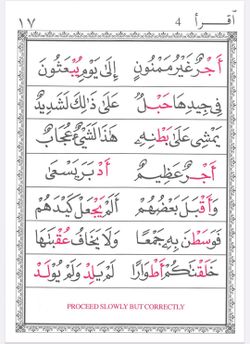 ١٧ 4 اَقْرَأْ
أَجْرٌ غَيْرُ مَمْنُونٍ إِلَى يَوْمِ يُبْعَثُونَ
فِي جِيدِهَا حَبْلٌ عَلَى ذَٰلِكَ لَشَهِيدٌ
يَمْشِي عَلَى بَطْنِهِ هَذَا لَشَيْءٌ عُجَابٌ
أَجْرٌ عَظِيمٌ أَدْبَرَ يَسْعَى
وَأَقْبَلَ بَعْضُهُمْ أَلَمْ يَجْعَلْ كَيْدَهُمْ
فَوَسَطْنَ بِهِ جَمْعًا وَلَا يَخَافُ عُقْبَهَا
خَلَقْنَكُمْ أَطْوَارًا لَمْ يَلِدْ وَلَمْ يُولَدْ
PROCEED SLOWLY BUT CORRECTLY